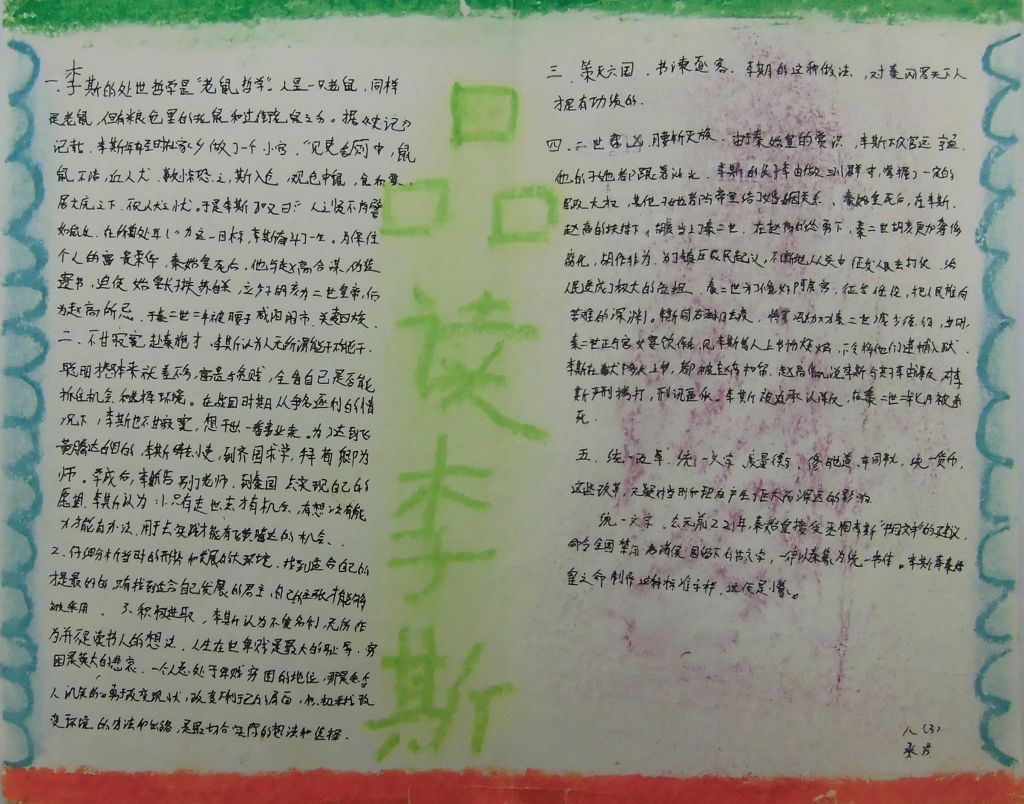 品读李斯
一、李斯的处世哲学是“老鼠哲学”人是一只老鼠，同样
是老鼠，但有粮仓里的老鼠和过街老鼠之分。据《史记》
记载，李斯年轻时在家乡做了一个小官，“见吏舍厕中，鼠
食不洁，近人犬，数惊恐之，斯入仓，观仓中鼠，食积粟，
居大庑之下，不见人犬之忧。于是李斯叹曰：人之贤不肖譬
如鼠矣，在所自处耳！”为这一目标，李斯奋斗了一生。为保住
个人的富贵荣华，秦始皇死后，他与赵高合谋，伪造
遗书，迫使始皇长子扶苏自杀，立少子胡亥为二世皇帝，后
为赵高所忌，于秦二世二年被腰斩咸阳闹市，夷三族。
二、不甘寂寞
聪明才智本来就差不多，富贵与贫贱，全看自己是否能
抓住机会和选择环境。在战国时期人人争名逐利的情
况下，李斯也不甘寂寞，想干出一番事业来。为了达到飞
黄腾达的目的，李斯辞去小吏，到齐国求学，拜荀卿为
师。学成后，李斯告别了老师，到秦国去实现自己的
愿望。李斯认为：只有走出去才有机会，有想法有能
力才能有办法，用于去实践才能有飞黄腾达的机会、
2、仔细分析当时的形势和发展的大环境，找到适合自己的
才是最好的，只有找到适合自己发展的君主，自己的主张才能够
被采用。3、积极进取，李斯认为不爱名利，无所作
为并不是读书人的想法，人生在世卑贱是最大的耻辱，穷
困是莫大的悲哀，一个人总处于卑贱穷困的地位，那是会令
人讥笑的。勇于改变现状，改变不利于己的局面，积极寻找改
变环境的方法和出路，是最切合实际的想法和选择．
三、策灭六国，书谏逐客，李斯的这种做法，对秦的天下人
才是有功绩的．
由于秦始皇的赏识，李斯不久官运亨通，
他的子女也都跟着沾光，李斯的长子李由做三川郡守，掌握了一定的
军政大权，其他子女也皆与帝室结了婚姻关系，秦始皇死后，在李斯、
赵高的扶持下，胡亥当上了秦二世，在赵高的怂恿下，秦二世胡亥更加奢侈
腐化，胡作非为，为了镇压农民起义，不断地从关中征发人民去打仗，给
人民造成了极大的负担，秦二世为了修好阿房宫，征发徭役，把人民推向
苦难的深渊。
秦二世正与宫女宴饮作乐，见李斯等人上书
李斯在狱中多次上书，都被赵高扣留，赵高借机说李斯与其子李由谋反，对李
斯严刑拷打，刑讯逼供。李斯被迫承认谋反，在秦二世二年七月被杀
死。
五、统一车轨、统一文字、度量衡、修驰道、车同轨，统一货币，
这些改革，无疑对当时和现在产生了巨大而深远的影响
统一文字，公元前221年，秦始皇接受丞相李斯“书同文字”的建议，
命令全国禁用各诸侯国留下的古文字，一律以秦篆为统一书体。李斯奉秦始
皇之命制作这种标准字样，这便是小篆。
八(3)